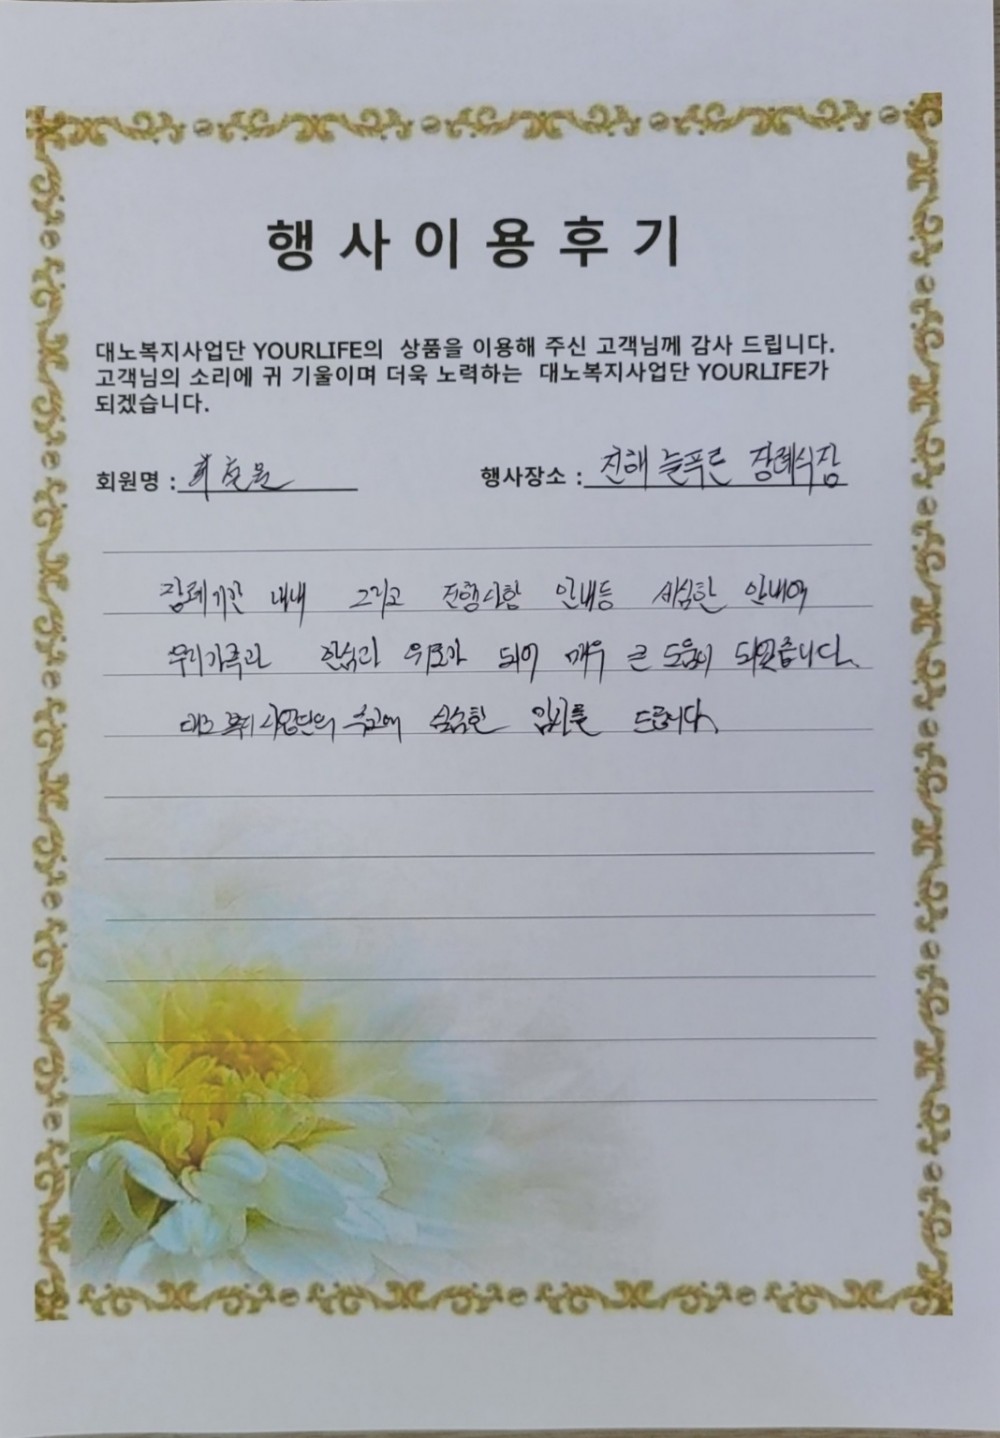 행사이용후기
대노복지사업단 YOURLIFE의 상품을 이용해 주신 고객님께 감사 드립니다.
고객님의 소리에 귀 기울이며 더욱 노력하는 대노복지사업단 YOURLIFE가
되겠습니다.
회원명 : 행사장소 : 진해 늘푸른 장례식장
장례기간 내내 그리고 진행사항 안내등 세심한 안내에
우리가족과 위로가 되어 매우 큰 도움이 되었습니다.
대노복지사업단의 수고에 드립니다.